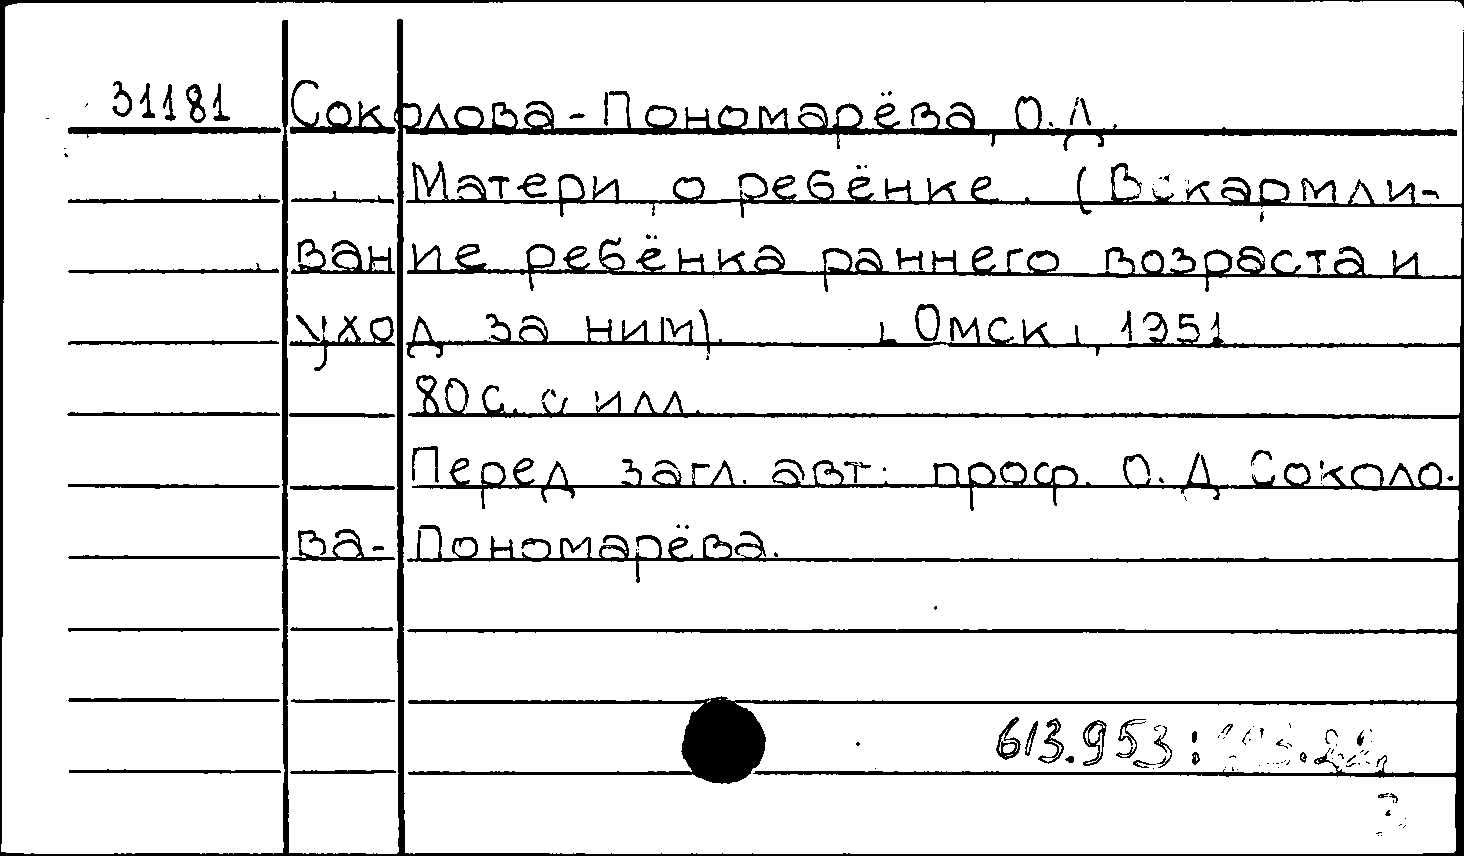 31181 Соколова-Пономарёва, О.Д.
Матери о ребёнке. (Вскармли-
вание ребёнка раннего возраста и
уход за ним). [Омск], 1951
80 с. с илл.
Перед загл. авт: проф. О.Д Соколо-
ва-Пономарёва.
613.953: